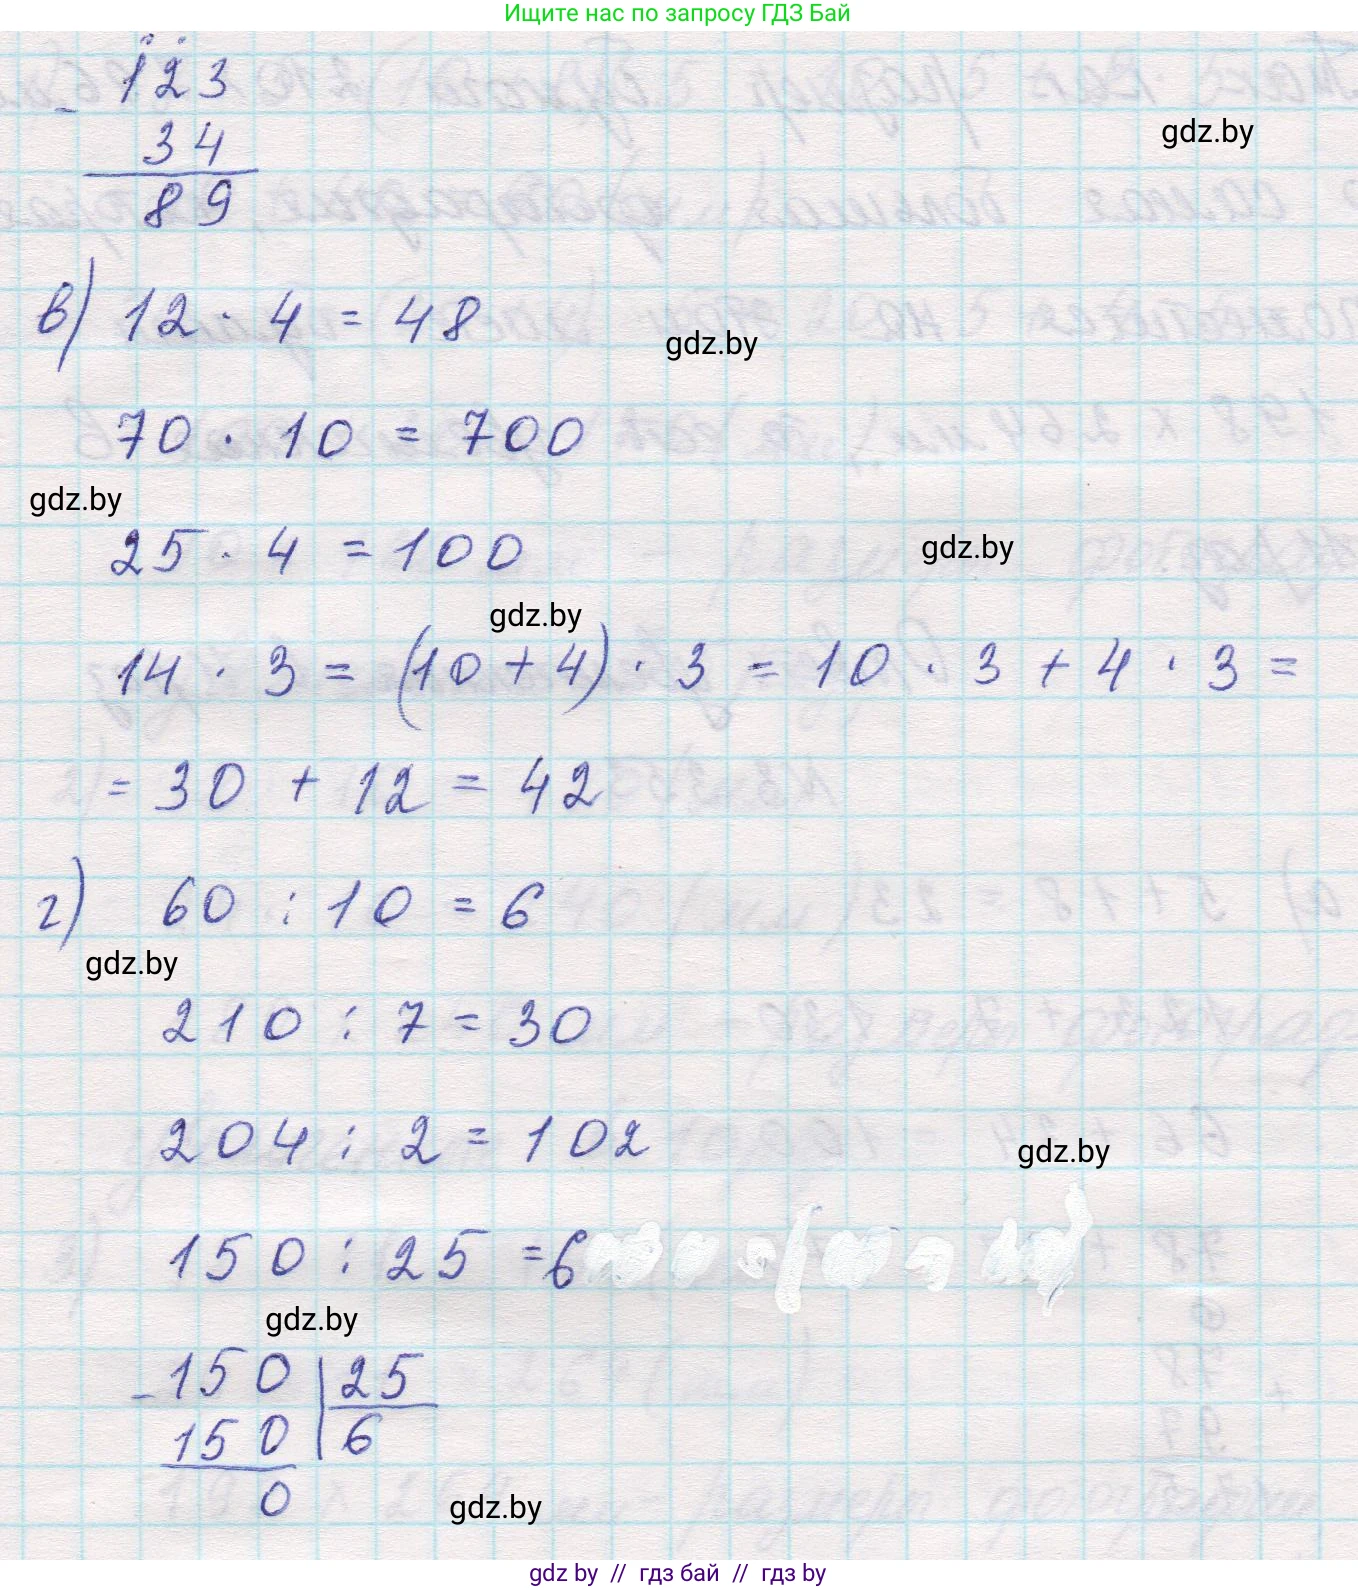 Ищите нас по запросу ГДЗ Бай
123
-
34
89
gdz.by
в) 12 · 4 = 48
gdz.by
70 · 10 = 700
gdz.by
25 · 4 = 100
gdz.by
gdz.by
14 · 3 = (10 + 4) · 3 = 10 · 3 + 4 · 3 =
= 30 + 12 = 42
г) 60 : 10 = 6
gdz.by
210 : 7 = 30
204 : 2 = 102
gdz.by
150 : 25 = 6
gdz.by
- 150 | 25
150 | 6
0
gdz.by
gdz.by // гдз бай // гдз by